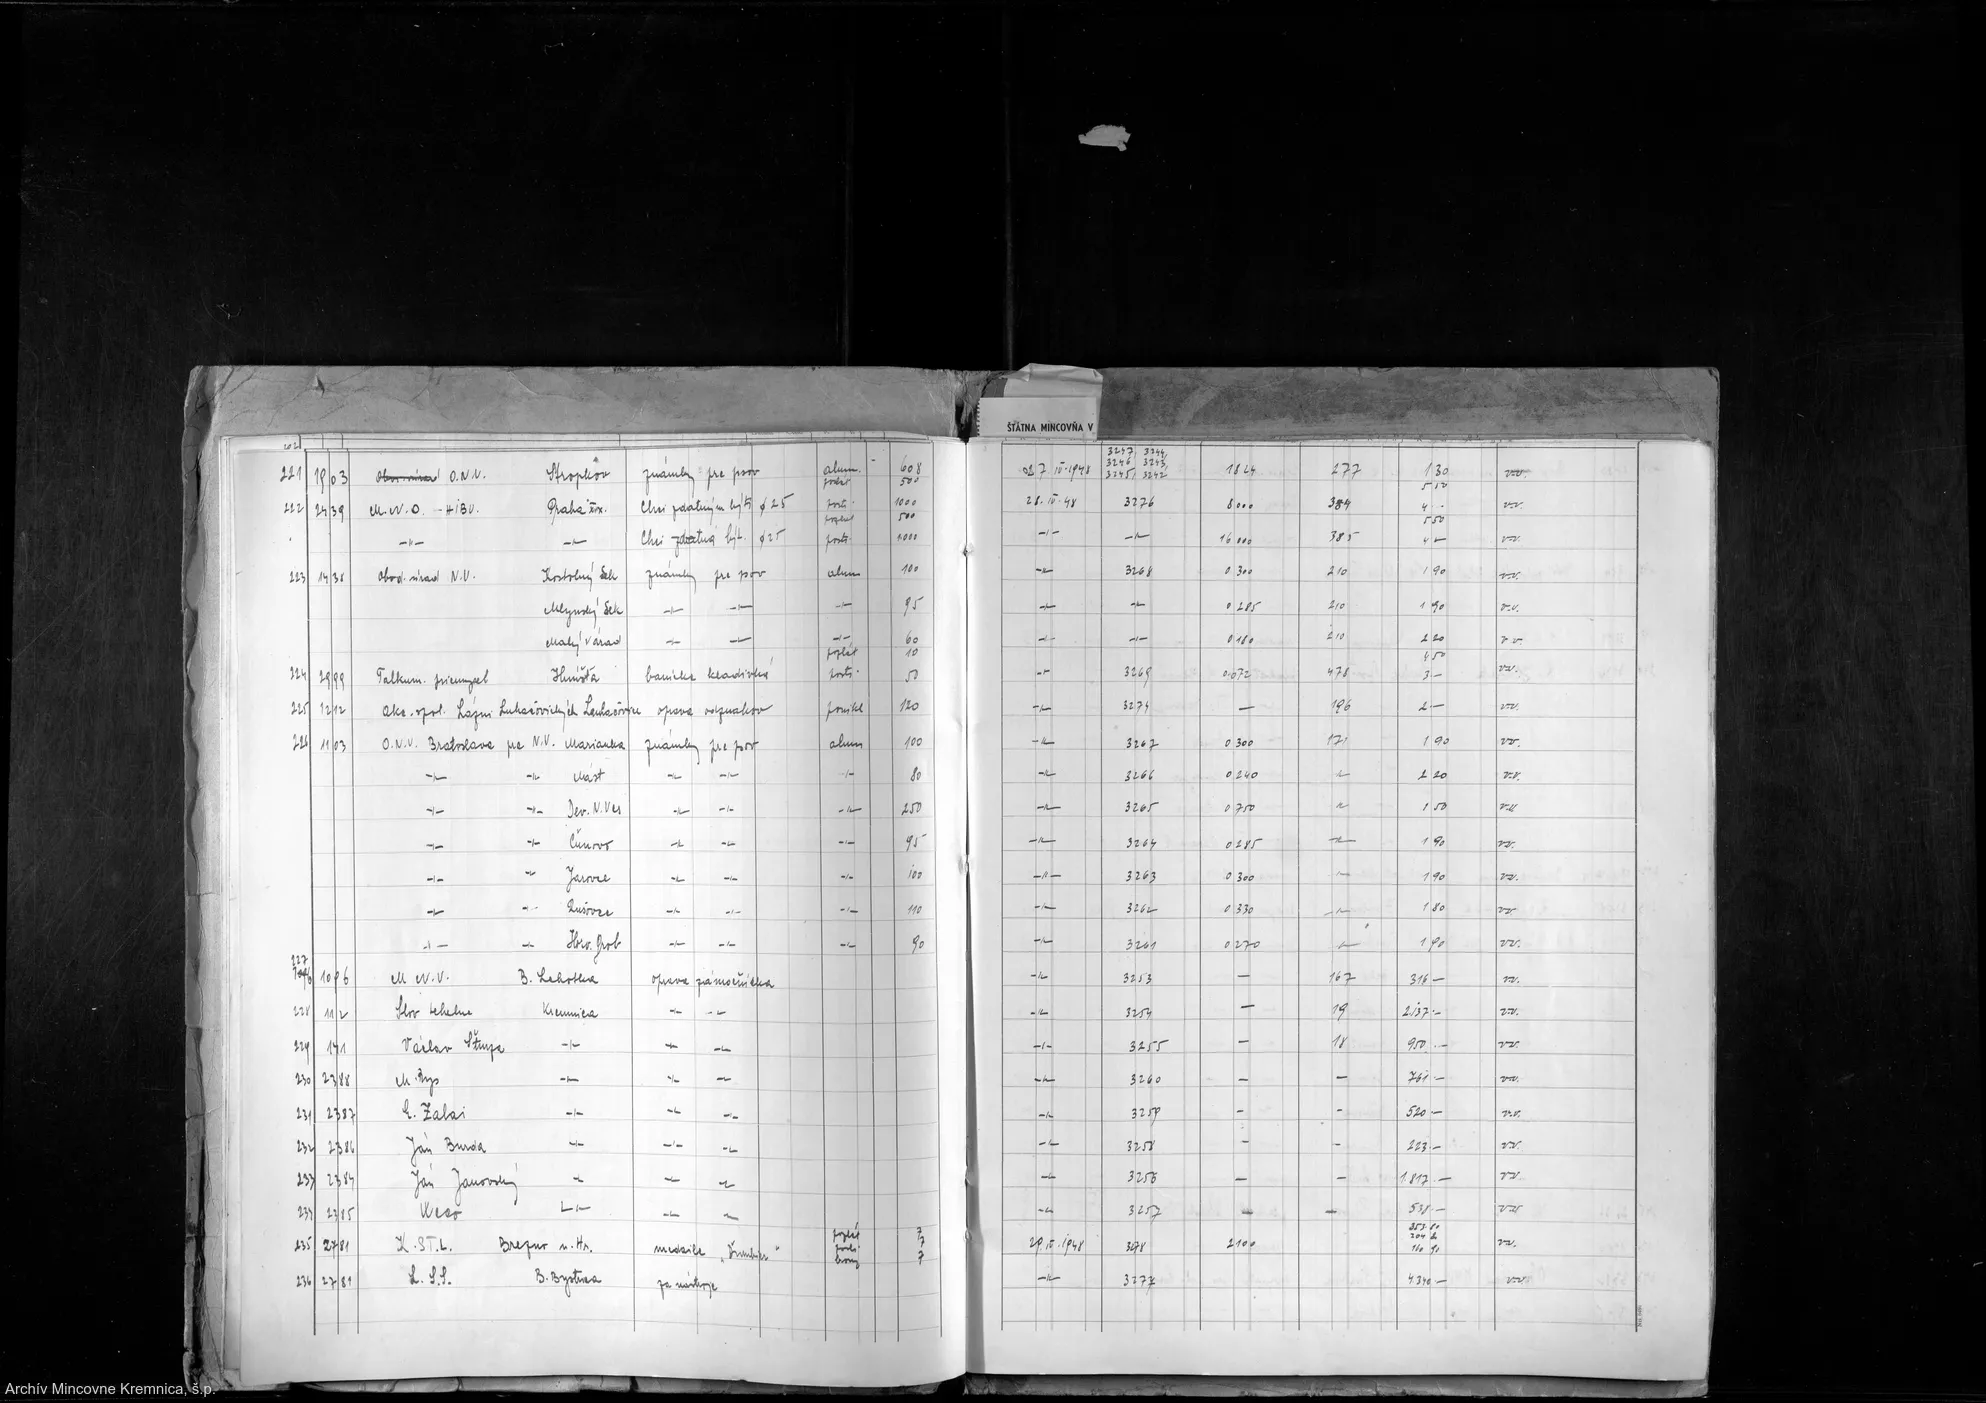 ŠTÁTNA MINCOVŇA V
202
221 1903 O.N.V. Stropkov známky pre psov alum. 608 27 IV. 1948 3247, 3244, 3246, 3243, 3245, 3242 1824 277 1 30 v.v.
222 2439 M.N.O. - HIBV. Praha XIX. Chci zdatným býti ø 25 postr. 1000 28. IV. 48 3276 8000 384 4 - v.v.
500 5 50
-"- -"- Chci býti ø 25 postr. 1000 -"- -"- 16 000 385 4 - v.v.
223 1438 Obvod. úrad N.V. Kostolný Sek známky pre psov alum 100 -"- 3268 0 300 210 1 90 v.v.
Mlynský Sek -"- -"- -"- 95 -"- -"- 0 285 210 1 90 v.v.
Malý Várad -"- -"- -"- 60 -"- -"- 0 180 210 2 20 v.v.
pozlát 10 4 50
224 2999 Talkum. priemysel Hnúšťa banícke kladivká postr. 50 -"- 3269 0.072 478 3 - v.v.
225 1212 Akc. spol. Lázní Luhačovických Luhačovice oprava odznakov ponikl 120 -"- 3274 - 196 2 - v.v.
226 1103 O.N.V. Bratislava pre N.V. Marianka známky pre psov alum 100 -"- 3267 0 300 171 1 90 v.v.
-"- -"- Mást -"- -"- -"- 80 -"- 3266 0 240 -"- 2 20 v.v.
-"- -"- Dev. N. Ves -"- -"- -"- 250 -"- 3265 0 750 -"- 1 50 v.v.
-"- -"- Čunovo -"- -"- -"- 95 -"- 3264 0 285 -"- 1 90 v.v.
-"- -"- Jarovce -"- -"- -"- 100 -"- 3263 0 300 -"- 1 90 v.v.
-"- -"- Rusovce -"- -"- -"- 110 -"- 3262 0 330 -"- 1 80 v.v.
-"- -"- Hrv. Grob -"- -"- -"- 90 -"- 3261 0 270 -"- 1 90 v.v.
227 1096 M.N.V. B. Lehotka oprava zámočnícka -"- 3253 - 167 316 - v.v.
228 112 Slov tehelne Kremnica -"- -"- -"- 3254 - 19 2.137 - v.v.
229 141 Václav -"- -"- -"- -"- 3255 - 18 950 - v.v.
230 2388 M. Rys -"- -"- -"- -"- 3260 - - 761 - v.v.
231 2387 E. Zalai -"- -"- -"- -"- 3259 - - 520 - v.v.
232 2386 Ján Burda -"- -"- -"- -"- 3258 - - 223 - v.v.
233 2384 Ján Janovský -"- -"- -"- -"- 3256 - - 1.817 - v.v.
234 2385 -"- -"- -"- -"- 3257 - - 538 - v.v.
pozlát 7
235 2781 K.ŠT.L. Brezno n. Hr. medaile „Ďumbier" postr. 7 29. IV. 1948 3278 2100 v.v.
bronz 7
236 2781 L.S.S. B. Bystrica za nástroje -"- 3277 4340 - v.v.
Archív Mincovne Kremnica, š.p.